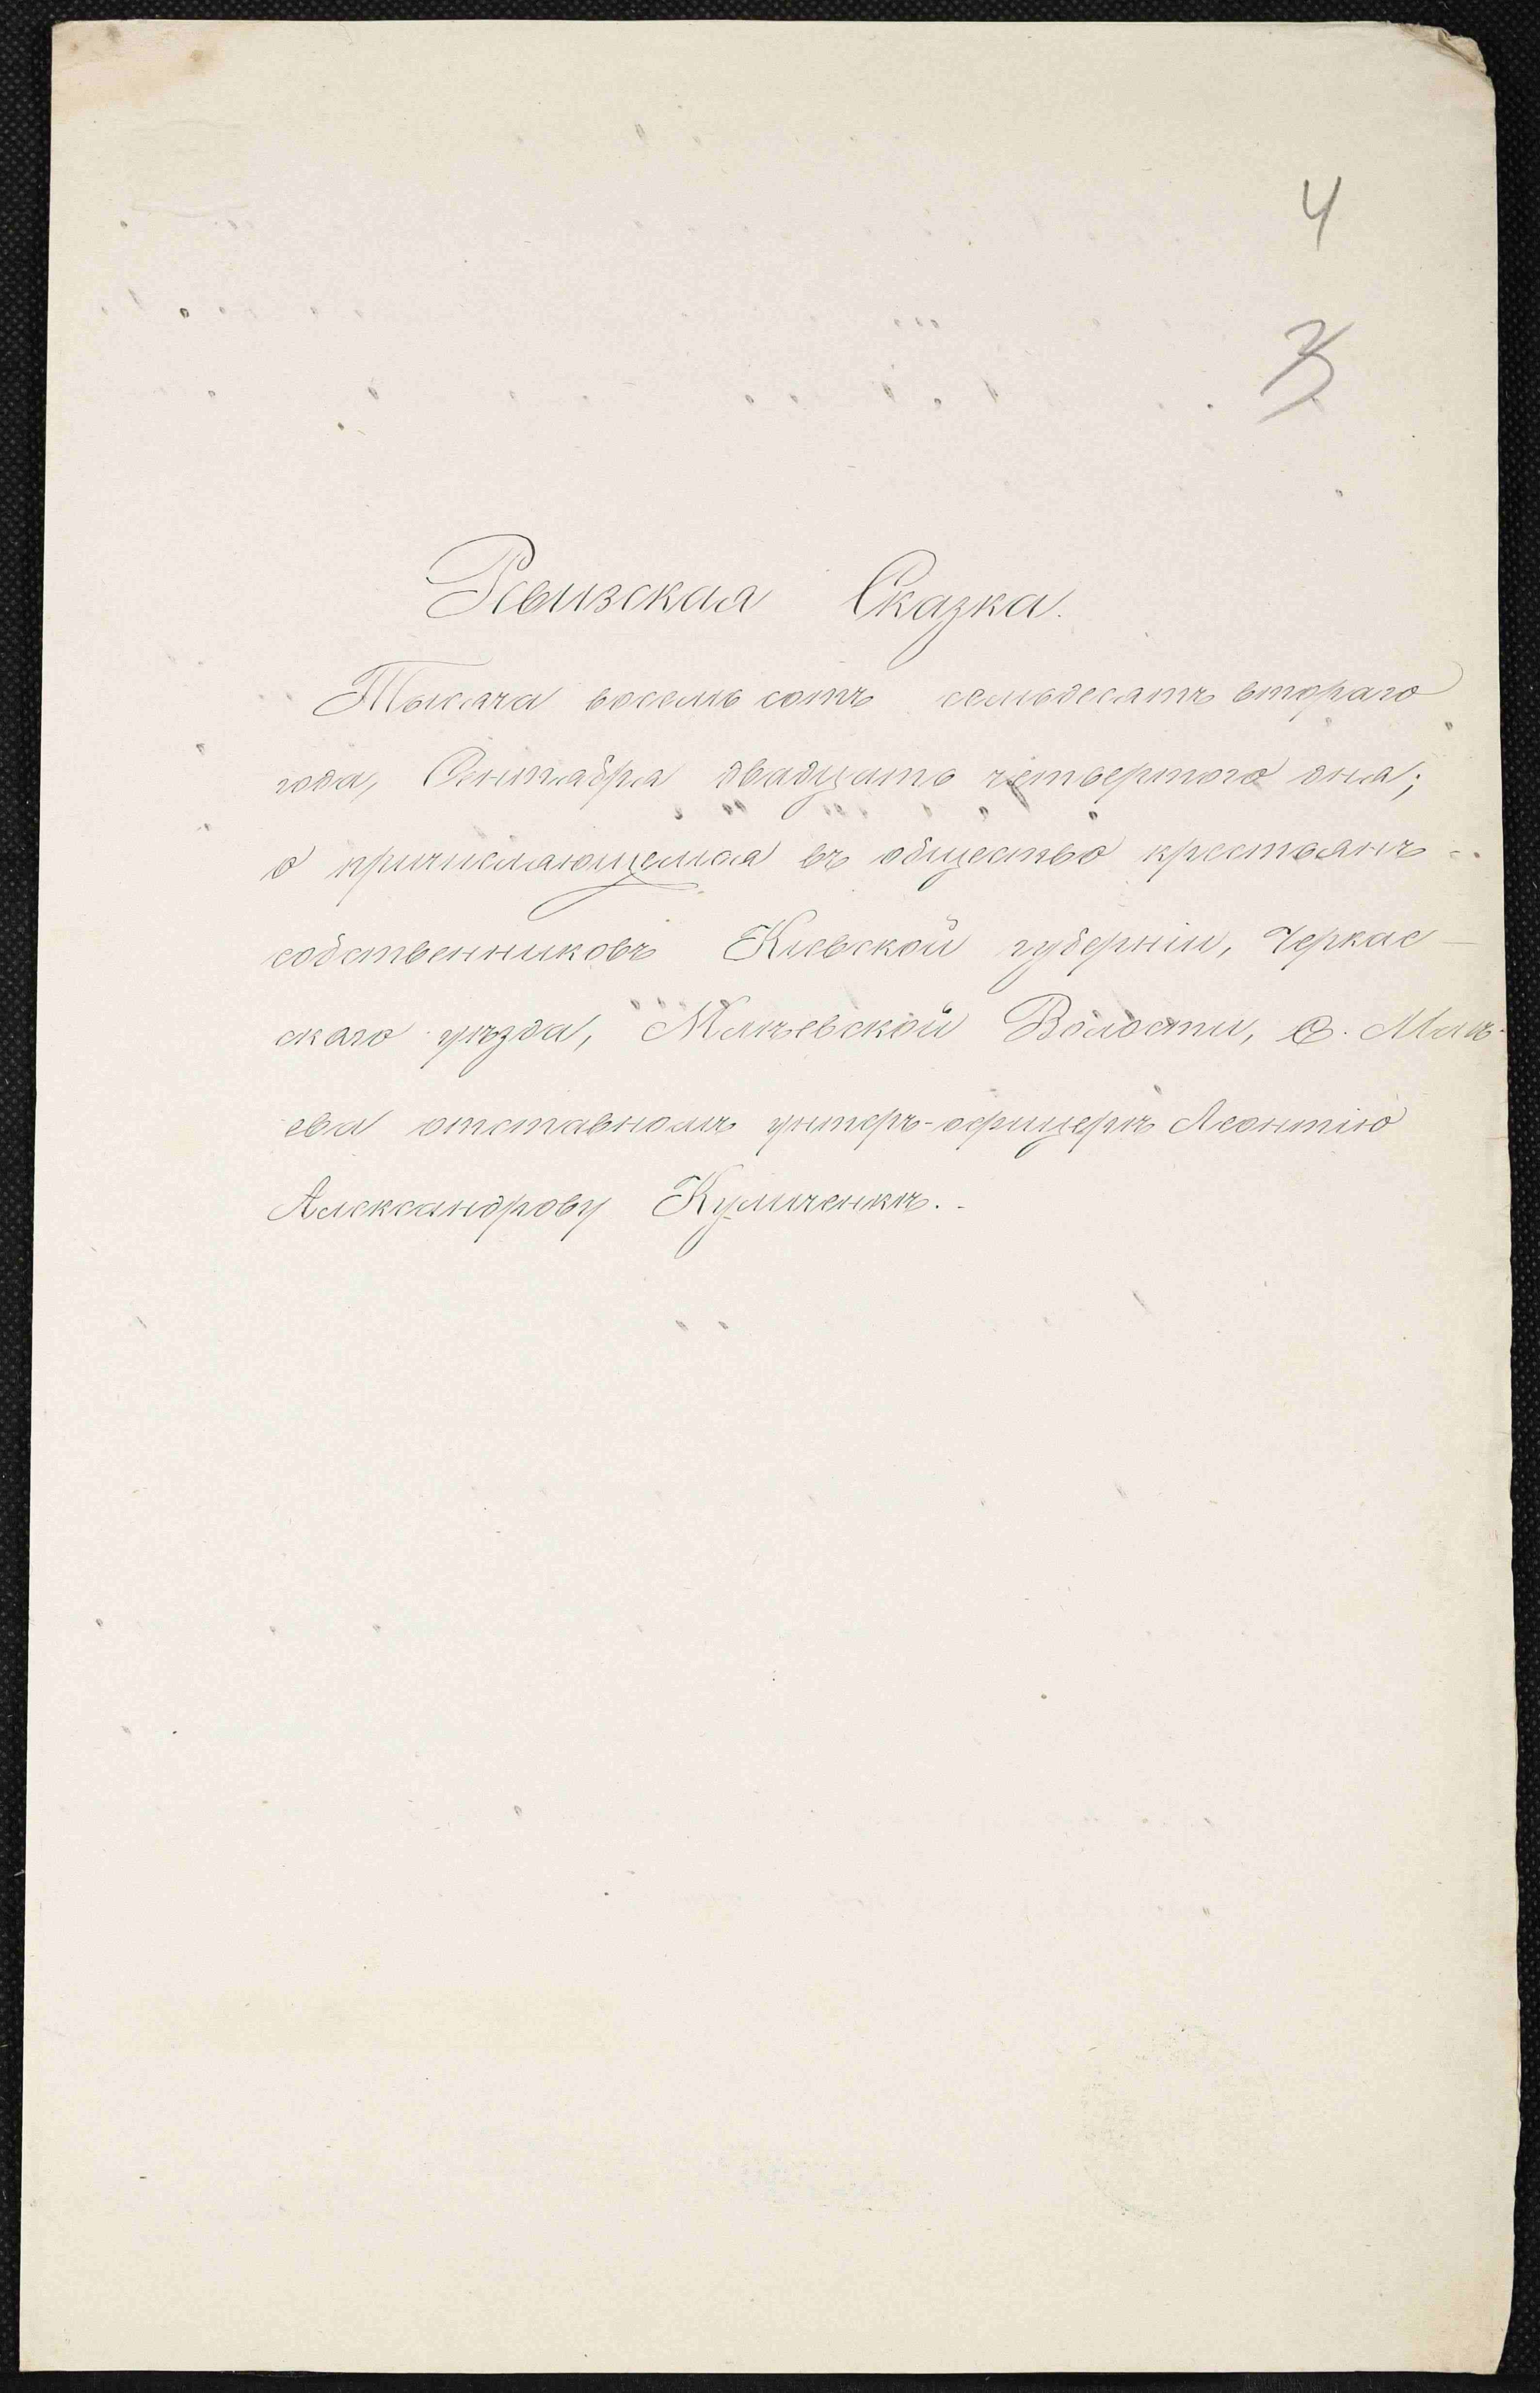 4
3
Ревизская Сказка.
Тысяча восемь сотъ семьдесятъ втораго
года, Сентября двадцать четвертого дня;
о причисляющемся въ общество крестьянъ -
собственниковъ Кіевской губерніи, Черкас-
скаго уѣзда, Млѣевской Волости, С. Млѣ-
ева отставномъ унтеръ-офицерѣ Леонтію
Александрову Куличенкѣ.